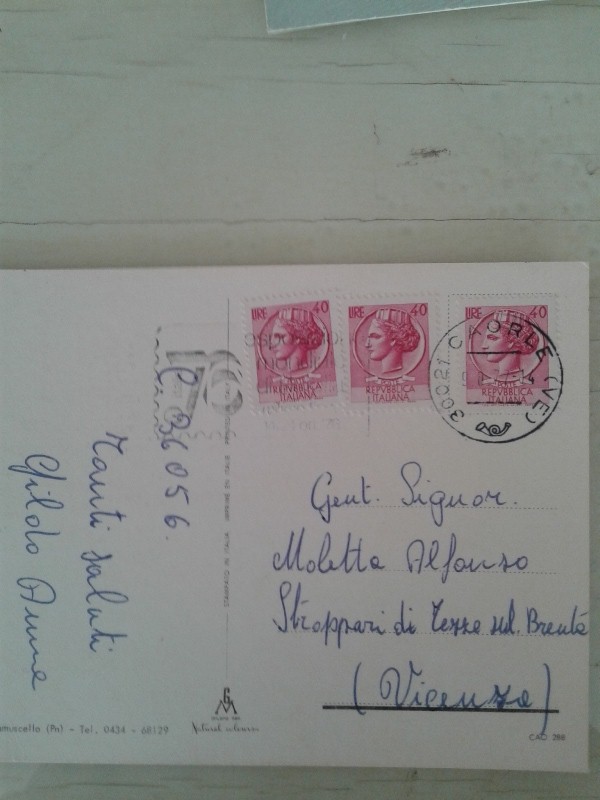 LIRE 40
REPVBBLICA
ITALIANA
LIRE 40
REPVBBLICA
ITALIANA
LIRE 40
REPVBBLICA
ITALIANA
30021 CAORLE (VE)
36056
Tanti saluti
Gildo Anna
Gent. Signor.
Moletta Alfonso
Stroppari di Tezze sul. Brenta
(Vicenza)
(Pn) - Tel. 0434 - 68129
CAO. 288